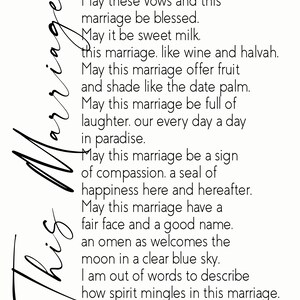 This Marriage
May these vows and this
marriage be blessed.
May it be sweet milk.
this marriage. like wine and halvah.
May this marriage offer fruit
and shade like the date palm.
May this marriage be full of
laughter. our every day a day
in paradise.
May this marriage be a sign
of compassion. a seal of
happiness here and hereafter.
May this marriage have a
fair face and a good name.
an omen as welcomes the
moon in a clear blue sky.
I am out of words to describe
how spirit mingles in this marriage.